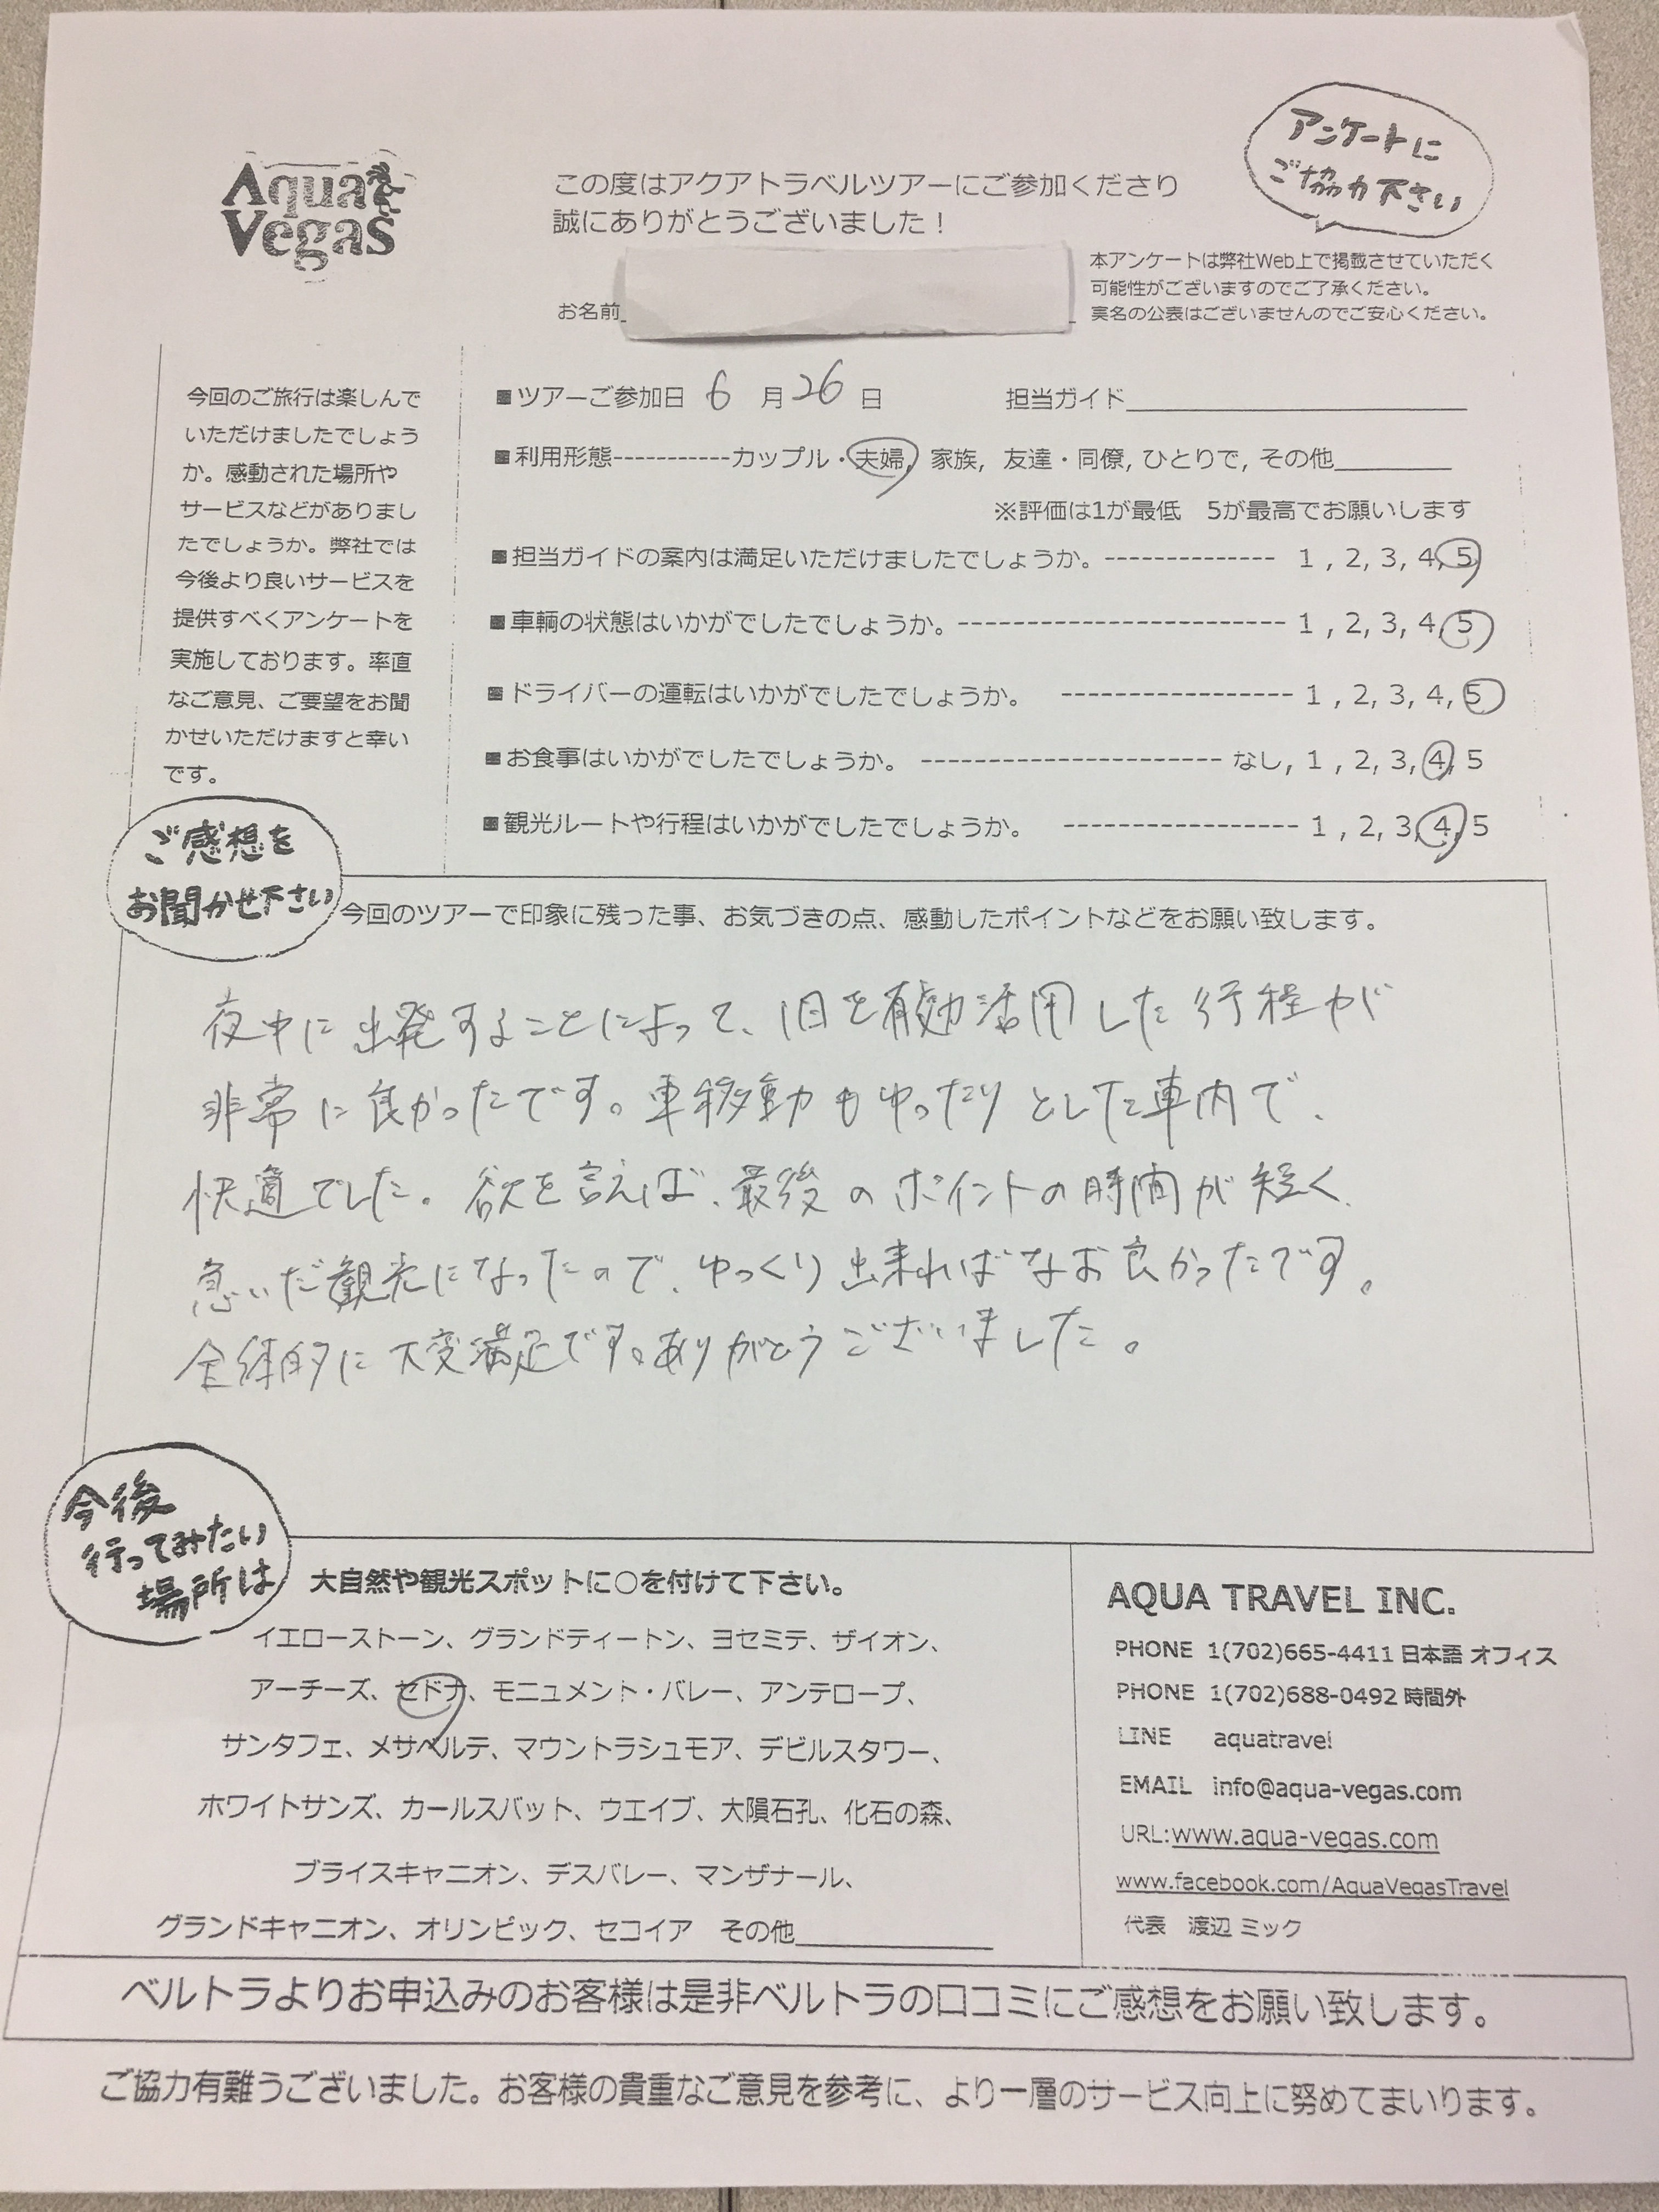 Aqua
Vegas
この度はアクアトラベルツアーにご参加くださり
誠にありがとうございました！
アンケートに
ご協力下さい
お名前
本アンケートは弊社Web上で掲載させていただく
可能性がございますのでご了承ください。
実名の公表はございませんのでご安心ください。
今回のご旅行は楽しんで
いただけましたでしょう
か。感動された場所や
サービスなどがありまし
たでしょうか。弊社では
今後より良いサービスを
提供すべくアンケートを
実施しております。率直
なご意見、ご要望をお聞
かせいただけますと幸い
です。
■ツアーご参加日 6 月 26 日 担当ガイド
■利用形態-----------カップル・夫婦, 家族, 友達・同僚, ひとりで, その他
※評価は1が最低 5が最高でお願いします
■担当ガイドの案内は満足いただけましたでしょうか。-------------- 1 , 2, 3, 4, 5
■車輌の状態はいかがでしたでしょうか。--------------------------- 1 , 2, 3, 4, 5
■ドライバーの運転はいかがでしたでしょうか。 ------------------- 1 , 2, 3, 4, 5
■お食事はいかがでしたでしょうか。 ------------------------- なし, 1 , 2, 3, 4, 5
■観光ルートや行程はいかがでしたでしょうか。 ------------------- 1 , 2, 3, 4, 5
ご感想を
お聞かせ下さい
今回のツアーで印象に残った事、お気づきの点、感動したポイントなどをお願い致します。
夜中に出発することによって、1日を有効活用した行程が
非常に良かったです。車移動もゆったりとした車内で、
快適でした。欲を言えば、最後のポイントの時間が短く、
急いだ観光になったので、ゆっくり出来ればなお良かったです。
全体的に大変満足です。ありがとうございました。
今後
行ってみたい
場所は
大自然や観光スポットに○を付けて下さい。
イエローストーン、グランドティートン、ヨセミテ、ザイオン、
アーチーズ、セドナ、モニュメント・バレー、アンテロープ、
サンタフェ、メサベルテ、マウントラシュモア、デビルスタワー、
ホワイトサンズ、カールスバット、ウエイブ、大隕石孔、化石の森、
ブライスキャニオン、デスバレー、マンザナール、
グランドキャニオン、オリンピック、セコイア その他
AQUA TRAVEL INC.
PHONE 1(702)665-4411 日本語 オフィス
PHONE 1(702)688-0492 時間外
LINE aquatravel
EMAIL info@aqua-vegas.com
URL:www.aqua-vegas.com
www.facebook.com/AquaVegasTravel
代表 渡辺 ミック
ベルトラよりお申込みのお客様は是非ベルトラの口コミにご感想をお願い致します。
ご協力有難うございました。お客様の貴重なご意見を参考に、より一層のサービス向上に努めてまいります。